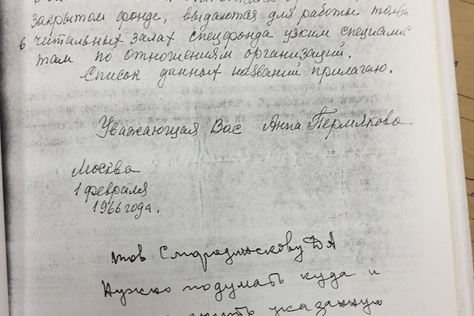 закрытом фонде, выдаются для работы только
в читальных залах спецфонда узким специалис
там по отношениям организаций.
Список данных названий прилагаю.
Уважающая Вас Анна Пермякова
Москва
1 февраля
1966 года.
тов ДА
Нужно подумать куда и
указанную